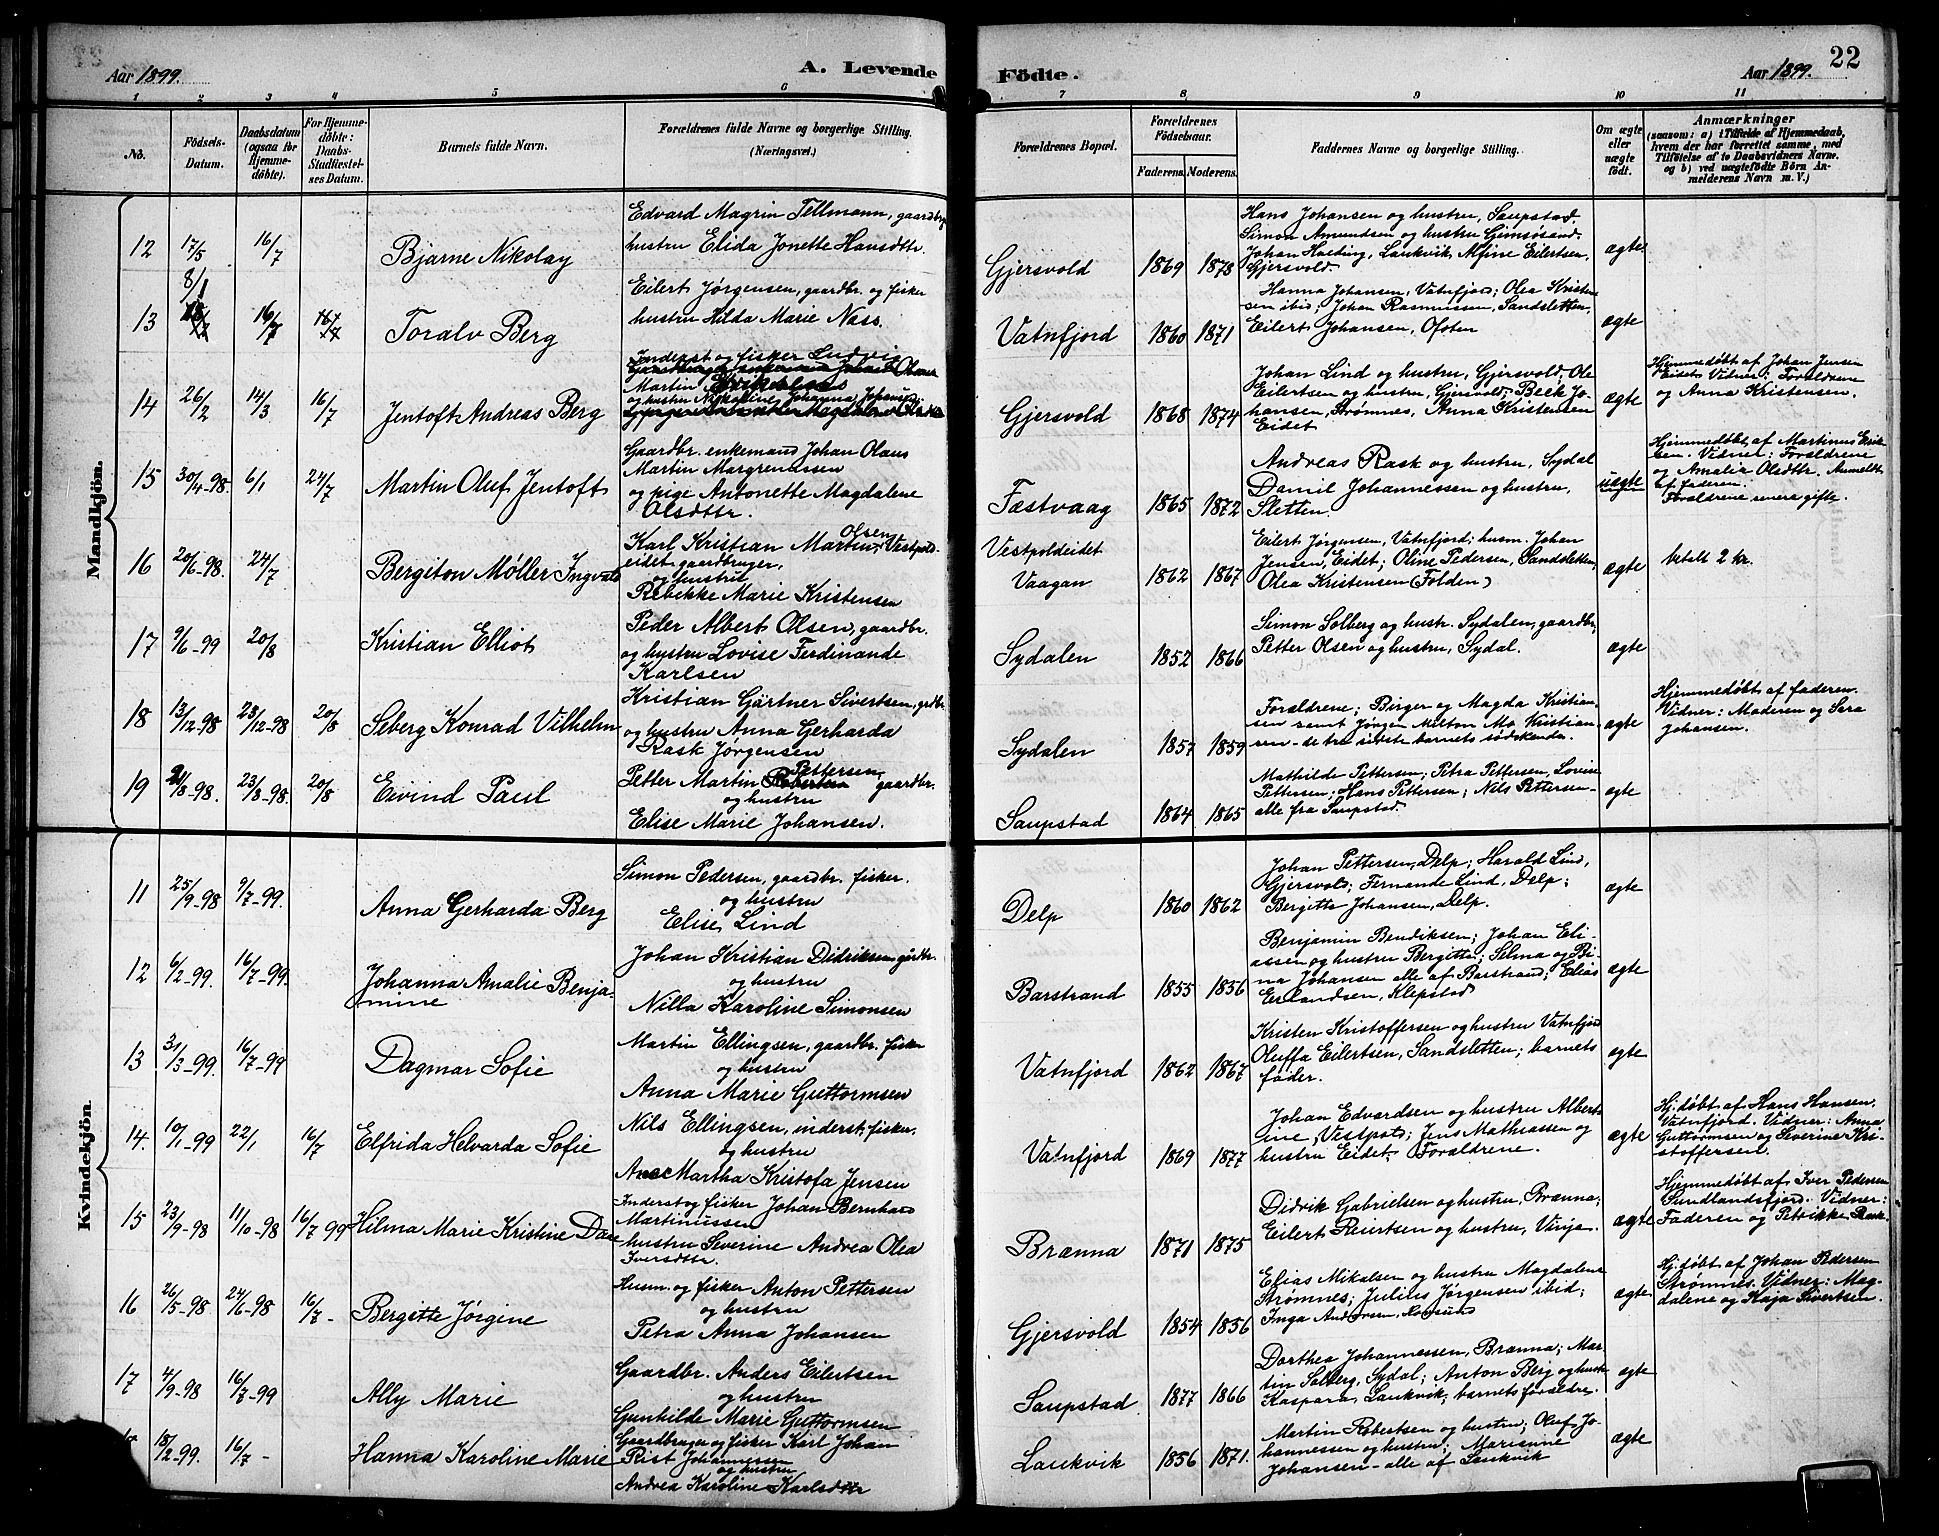 Aar 1899.
A. Levende
Födte.
Aar 1899.
22
1 2 3 4 5 6 7 8 9 10 11
No.
Födsels-
Datum.
Daabsdatum
(ogsaa for
Hjemme-
döbte).
For Hjemme-
döbte:
Daabs-
Stadfæstel-
ses Datum.
Barnets fulde Navn.
Forældrenes fulde Navne og borgerlige Stilling.
(Næringsvei.)
Forældrenes Bopæl.
Forældrenes
Födselsaar.
Faderens. Moderens.
Faddernes Navne og borgerlige Stilling.
Om ægte
eller
uægte
födt.
Anmærkninger
(saasom: a) i Tilfælde af Hjemmedaab,
hvem der har forrettet samme, med
Tilföielse af to Daabsvidners Navne,
og b) ved uægtefödte Börn An-
melderens Navn m. V.)
Mandkjön.
12 17/5 16/7 Bjarne Nikolay
Edvard Magrin Tellmann, gaardbr
hustru Elida Jonette Hansdttr.
Gjersvold 1869 1878
Hans Johansen og hustru, Saupstad.
Simon Amundsen og hustru Gimsøsand.
Johan Harding, Laukvik, Alfine Eilertsen,
Gjersvold.
ægte
13 8/1 16/7 Toralv Berg
Eilert Jørgensen, gaardbr. og fisker
hustru Hilda Marie Nass.
Vatnfjord 1860 1871
Hanna Johansen, Vatnfjord; Olea Kristen
sen ibid; Johan Rasmussen, Sandsletten,
Eilert Johansen, Ofoten
ægte
14 26/2 14/3 16/7 Jentoft Andreas Berg
Inderst og fisker Ludvig
Martin
og hustru Nikoline Johanna
Gjersvold 1868 1874
Johan Lind og hustru, Gjersvold, Ole
Eilertsen og hustru, Gjersvold; Beck Jo-
hansen, Strømnes, Anna Kristensen
Eidet
ægte
Hjemmedøbt af Johan Jensen
Eidet. Vidner: Forældrene
og Anna Kristensen.
15 30/4-98. 6/1 24/7 Martin Oluf Jentoft
Gaardbr. enkemand Johan Olaus
Martin Margrenussen
og pige Antonette Magdalene
Olsdttr.
Fæstvaag 1865 1872
Andreas Rask og hustru, Sydal
Daniel Johannessen og hustru,
Sletten.
uægte
Hjemmedøbt af Martinus Erik-
sen. Vidner: Forældrene
og Amalia Olsdttr. Anmeldt
af faderen.
Forældrene senere gifte.
16 20/6-98. 24/7 Bergiton Møller Ingvald
Karl Kristian Martin Olsen, Vestpold-
eidet gaardbruger,
og hustru
Rebekke Marie Kristensen
Vestpoldeidet
Vaagan 1862 1867
Eilert Jørgensen, Vatnfjord; husm. Johan
Jensen, Eidet; Oline Pedersen, Sandsletten,
Olea Kristensen (Folden)
ægte
betalt 2 kr.
17 9/6-99 20/8 Kristian Elliot
Peder Albert Olsen, gaardbr.
og hustru Lovise Ferdinande
Karlsen
Sydalen 1852 1866
Simon Solberg og hustr. Sydalen, gaardbr,
Petter Olsen og hustru, Sydal.
ægte
18 13/12-98 28/12-98 20/8 Seberg Konrad Vilhelm
Kristian Gärtner Sivertsen, grdbr
og hustru Anna Gerharda
Rask Jørgensen
Sydalen 1857 1859
Forældrene; Birger og Magda Kristian-
sen samt Jørgen Milton Mo Kristian-
sen - de tre sidste barnets sødskende.
ægte
Hjemmedøbt af faderen.
Vidner: Moderen og Sara
Johansen.
19 21/8-98. 23/8-98. 20/8 Eivind Paul
Petter Martin Pettersen, gaardbr.
og hustru
Elise Marie Johansen.
Saupstad 1864 1865
Mathilde Pettersen; Petra Pettersen, Lovise
Pettersen; Hans Pettersen; Nils Pettersen -
alle fra Saupstad.
ægte
Kvindekjön.
11 25/9-98 9/7-99. Anna Gerharda Berg
Simon Pedersen, gaardbr. fisker.
og hustru
Elise Lind
Delp 1860 1862
Johan Pettersen, Delp; Harald Lind,
Gjersvold; Fernande Lind, Delp;
Bergitte Johansen, Delp.
ægte
12 6/2-99. 16/7-99. Johanna Amalie Benja-
mine
Johan Kristian Didriksen gårdbr.
og hustru
Nilla Karoline Simonsen
Barstrand 1855 1856
Benjamin Bendiksen; Johan Eli-
assen og hustru Bergitte; Selma og Bi-
na Johansen alle af Barstrand; Elias
Erlandsen, Klepstad
ægte
13 31/3-99. 16/7-99 Dagmar Sofie
Martin Ellingsen, gaardbr. fisker
og hustru
Anna Marie Guttormsen
Vatnfjord 1862 1867
Kristen Kristoffersen og hustru Vatnfjord
Oluffa Eilertsen, Sandsletten; barnets
fader.
ægte
14. 10/1-99 22/1 16/7 Elfrida Helvarda Sofie
Nils Ellingsen, inderst, fisker.
og hustru
Ane Martha Kristofa Jensen
Vatnfjord 1869 1877
Johan Edvardsen og hustru Albert
ine, Vestpold; Jens Mathiassen og
hustru Eidet; Forældrene.
ægte
Hj. døbt af Hans Hansen.
Vatnfjord. Vidner: Anna
Guttormsen og Severine Kri-
stoffersen.
15 23/9-98 11/10-98 16/7 99 Hilma Marie Kristine Dane
Inderst og fisker Johan Bernhard
Martinussen
hustru Severine Andrea Olea
Iversdttr.
Brænna 1871 1875
Didrik Gabrielsen og hustru, Brænna;
Eilert Reiertsen og hustru, Vinja.
ægte
Hjemmedøbt af Iver Pedersen
Sundlandsfjord. Vidner:
Faderen og Petrikke Rask.
16 26/5-98 24/6-98 16/7- Bergitte Jørgine
Husm. og fisker Anton Pettersen
og hustru
Petra Anna Johansen
Gjersvold 1854 1856
Elias Mikalsen og hustru Magdalene
Strømnes; Julius Jørgensen ibid;
Inga Andersen,
ægte
Hj. døbt af Johan Pedersen
Strømnes. Vidner: Mag-
dalene og Kaja Sivertsen.
17 4/9-98 16/7-99 Ally Marie
Gaardbr. Anders Eilertsen
og hustru
Gunhilde Marie Guttormsen
Saupstad 1877 1866
Dorthea Johannessen, Brænna; Mar-
tin Solberg, Sydal; Anton Berg og hustru
Kaspara, Laukvik; barnets forældre.
ægte
18/2-99. 16/7- Hanna Karoline Marie
Gaardbruger og fisker Karl Johan
Rist Johannessen
og hustru
Andrea Karoline Karlsdttr
Laukvik 1856 1871.
Martin Robertsen og hustru; Oluf Jo-
hannessen og hustru; Marianne
Johansen - alle af Laukvik
ægte